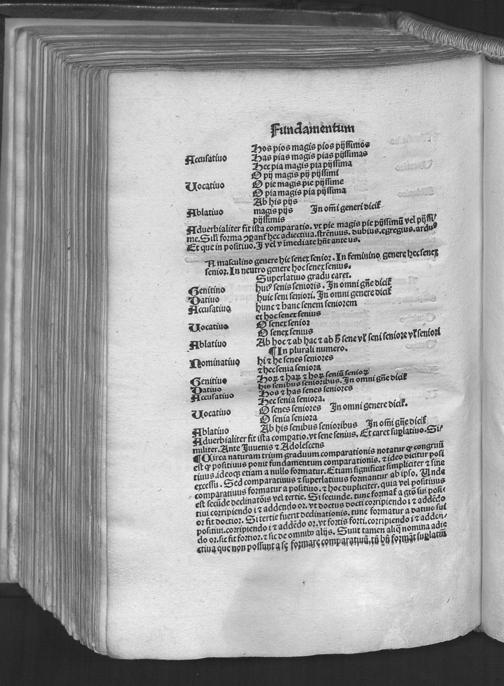 Fundamentum
Hos pios magis pios pijssimos
Accusatiuo Has pias magis pias pijssimas
Hec pia magis pia pijssima
O pij magis pij pijssimi
Uocatiuo O pie magis pie pijssime
O pia magis pia pijssima
Ab his pijs
Ablatiuo magis pijs In oĩ generi dicit᷑
pijssimis
Aduerbialiter fit ista comparatio. vt pie magis pie pijssimũ vel pijssi/
me. Sili forma cõpanť hec adiectiua. strẽnuus. dubius. egregius. arduꝰ
Et que in positiuo. I vel v ĩmediate hñt ante us.
A masculino genere hic senex senior. In feminino genere hec senex
senior. In neutro genere hoc senex senius.
Superlatiuo gradu caret.
Genitiuo huiꝰ senis senioris. In omni gñe dicit᷑
Datiuo huic seni seniori. In omni genere dicit᷑
Accusatiuo hunc & hanc senem seniorem
et hoc senex senius
Uocatiuo O senex senior
O senex senius
Ablatiuo Ab hoc & ab hac & ab h̃ sene vĺ seni seniore vĺ seniori
¶ In plurali numero.
Nominatiuo hi & he senes seniores
& hec senia seniora
Genitiuo Hoꝝ & haꝝ & hoꝝ seniũ senioꝝ
Datiuo his senibus senioribus. In omni gñe dicit᷑
Accusatiuo Hos & has senes seniores
Hec senia seniora.
Uocatiuo O senes seniores In omni genere dicit᷑.
O senia seniora
Ablatiuo Ab his senibus senioribus In oĩ gñe dicit᷑
Aduerbialiter fit ista comꝑatio. vt sene senius. Et caret suꝑlatiuo. Si/
militer. Ante Iuuenis & Adolescens
¶ Circa naturam trium graduum comparationis notatur ꝙ congruũ
est ꝙ positiuus ponit fundamentum comparationis. & ideo dicitur posi
tiuus ideoqꝫ etiam a nullo formatur. Etiam significat simpliciter & sine
excessu. Sed comparatiuus & superlatiuus formantur ab ipso. Unde
comparatiuus formatur a positiuo. & hoc dupliciter. quia vel positiuus
est secũde declinatõis vel tertie. Si secunde. tunc format᷑ a gtõ sui posi/
tiui corripiendo i & addendo or. vt doctus docti corripiendo i & addẽdo
or fit doctior. Si tertie fuerit declinationis. tunc formatur a datiuo sui
positiui. corripiendo i & addẽdo or. vt fortis forti. corripiendo i & adden/
do or. sic fit fortior. & sic de omnibꝰ alijs. Sunt tamen aliq̃ nomina adie
ctiua que non possunt a se formare comparatiuũ. tñ bñ formãt suꝑlatiuũ